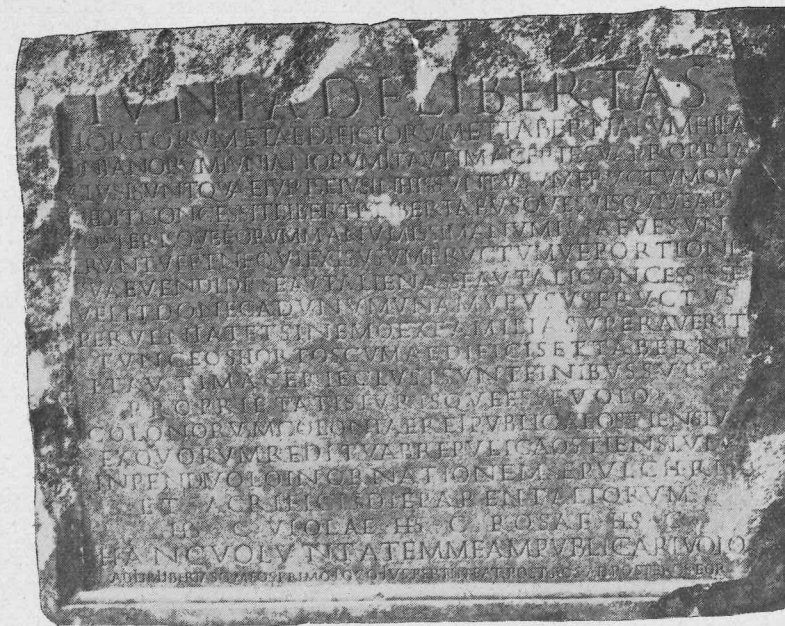 IVNIA D F LIBERTAS
HORTORVM ET AEDIFICIORVM ET TABERNARVM HILA
ITA VTI MACERIE SVA PROPRIA
CLVSI SVNT QVAE IVRIS EIVS IN HIS SVNT VSVM FRVCTVMQVE
DEDIT CONCESSIT LIBERTIS LIBERTABVSQVE SVIS QVIVE AB
EORVM MANVMISSI MANVMISSAEVE SVNT
VSVM FRVCTVMVE PORTIONIS
SVAE VENDIDISSE AVT ALIENASSE AVT ALI CONCESSISSE
VELIT DONEC AD VNVM VNAMVE VSVS FRVCTVS
PERVENIAT ET SI NEMO EX FAMILIA SVPERAVERIT
TVNC EOS HORTOS CVM AEDIFICIS ET TABERNIS
ITA VTI MACERIE CLVSI SVNT FINIBVS SVIS
PROPRIETATIS IVRISQVE ESSE VOLO
COLONORVM COLONIAE REI PVBLICAE OSTIENSIVM
EX QVORVM REDITV A RE PVLICA OSTIENSIVM
INPENDI VOLO IN ORNATIONEM SEPVLCHRI
ET SACRIFICIS DIE PARENTALIORVM
HS C VIOLAE HS C ROSAE HS C
HANC VOLVNTATEM MEAM PVBLICARI VOLO